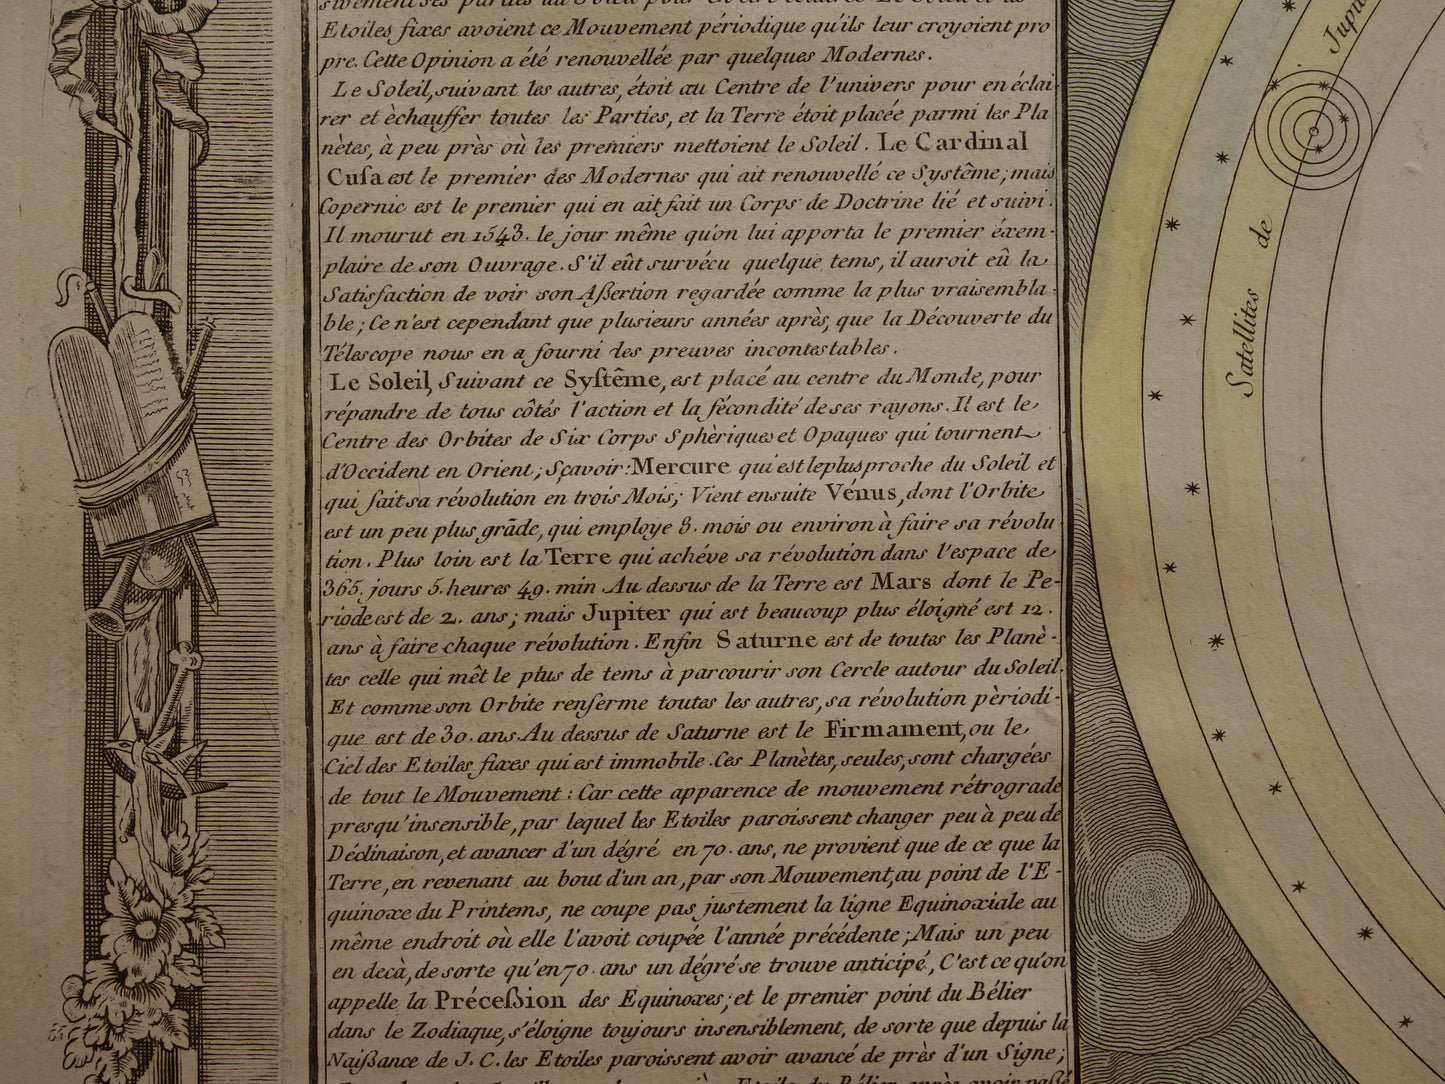 Etoiles fixes avoient ce Mouvement périodique qu'ils leur croyoient pro
pre. Cette Opinion a été renouvellée par quelques Modernes.
Le Soleil, suivant les autres, étoit au Centre de l'univers pour en éclai-
rer et èchauffer toutes les Parties, et la Terre étoit placée parmi les Pla
nètes, à peu près où les premiers mettoient le Soleil. Le Cardinal
Cuſa est le premier des Modernes qui ait renouvellé ce Systême; mais
Copernic est le premier qui en ait fait un Corps de Doctrine lié et suivi.
Il mourut en 1543. le jour même qu'on lui apporta le premier éxem-
plaire de son Ouvrage. S'il eût survécu quelque tems, il auroit eû la
Satisfaction de voir son Aßertion regardée comme la plus vraisembla-
ble; Ce n'est cependant que plusieurs années après, que la Découverte du
Télescope nous en a fourni des preuves incontestables.
Le Soleil, Suivant ce Syſtême, est placé au centre du Monde, pour
répandre de tous côtés l'action et la fécondité de ses rayons. Il est le
Centre des Orbites de Six Corps Sphèriques et Opaques qui tournent
d'Occident en Orient; Sçavoir: Mercure qui est le plus proche du Soleil et
qui fait sa révolution en trois Mois; Vient ensuite Vénus, dont l'Orbite
est un peu plus grãde, qui employe 8. mois ou environ à faire sa révolu
tion. Plus loin est la Terre qui achéve sa révolution dans l'espace de
365. jours 5. heures 49. min. Au dessus de la Terre est Mars dont le Pe-
riode est de 2. ans; mais Jupiter qui est beaucoup plus éloigné est 12.
ans à faire chaque révolution. Enfin Saturne est de toutes les Planè-
tes celle qui mêt le plus de tems à parcourir son Cercle autour du Soleil.
Et comme son Orbite renferme toutes les autres, sa révolution pèriodi-
que est de 30. ans. Au dessus de Saturne est le Firmament, ou le
Ciel des Etoiles fixes qui est immobile. Ces Planètes, seules, sont chargées
de tout le Mouvement: Car cette apparence de mouvement rétrograde
presqu'insensible, par lequel les Etoiles paroissent changer peu à peu de
Déclinaison, et avancer d'un dégré en 70. ans, ne provient que de ce que la
Terre, en revenant au bout d'un an, par son Mouvement, au point de l'E-
quinoxe du Printems, ne coupe pas justement la ligne Equinoxiale au
même endroit où elle l'avoit coupée l'année précédente; Mais un peu
en decà, de sorte qu'en 70. ans un dégré se trouve anticipé, C'est ce qu'on
appelle la Préceßion des Equinoxes; et le premier point du Bélier
dans le Zodiaque, s'éloigne toujours insensiblement, de sorte que depuis la
Naißance de J. C. les Etoiles paroissent avoir avancé de près d'un Signe;
Satellites de